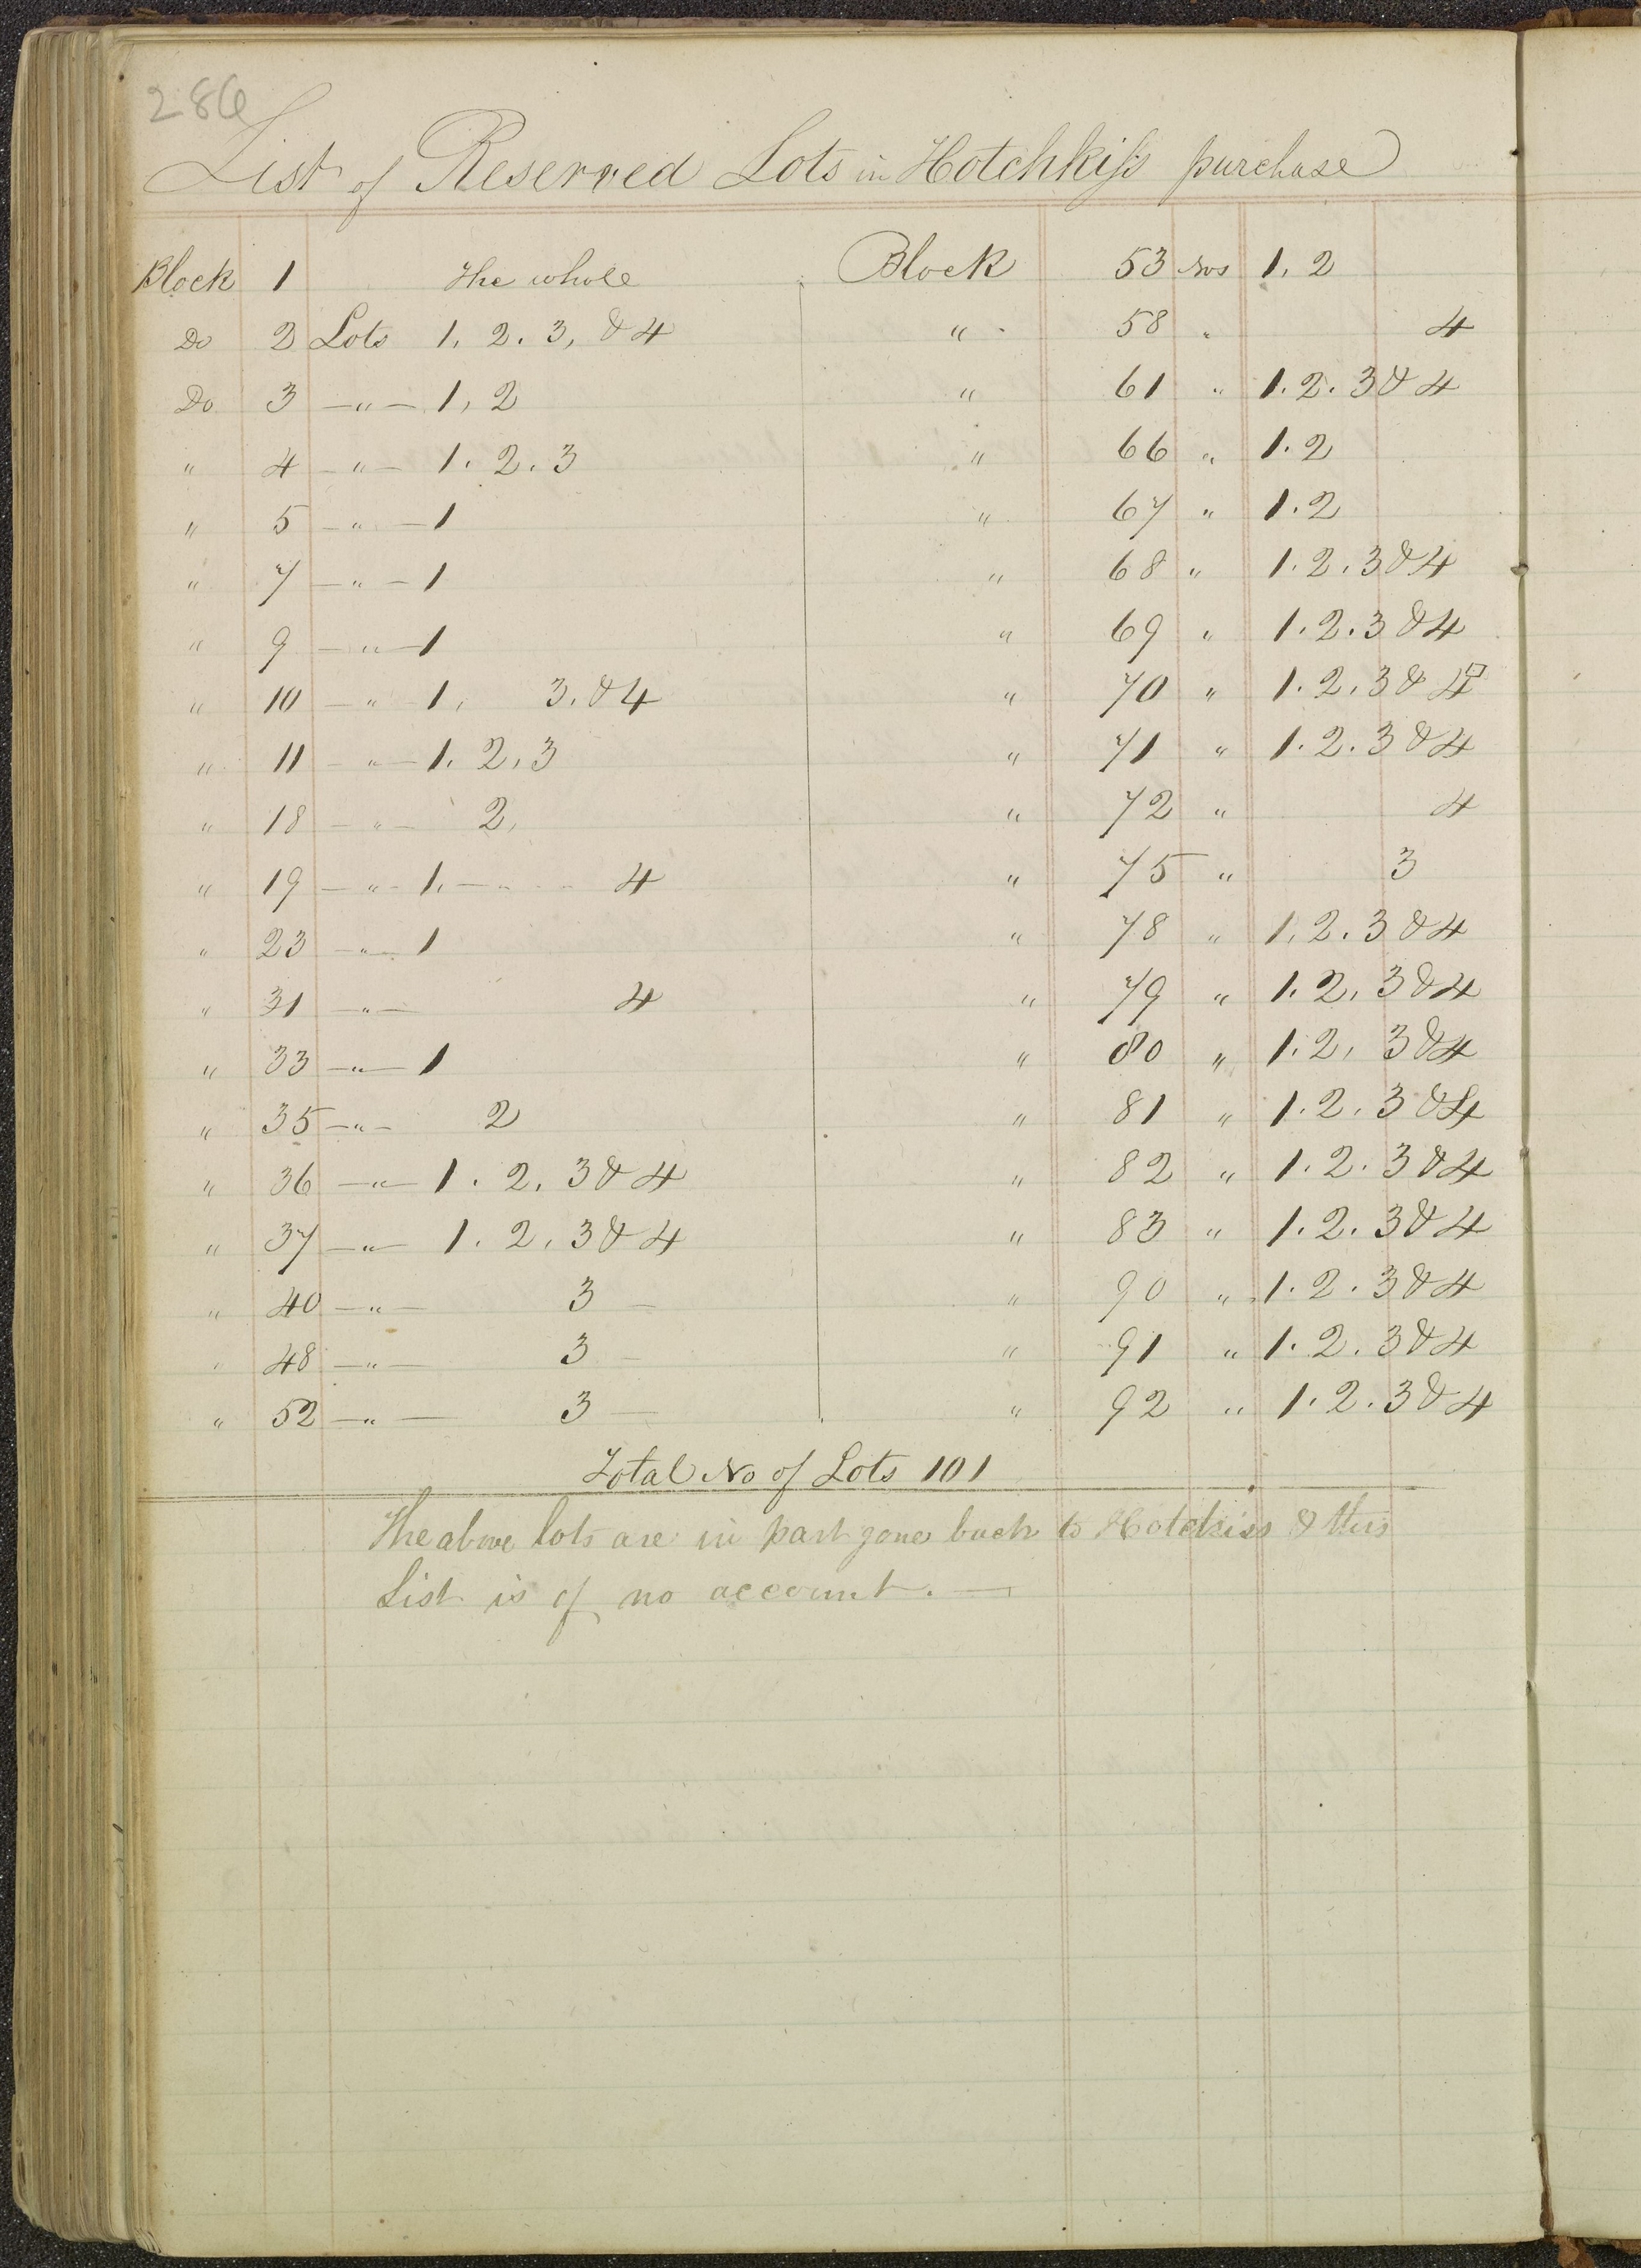 286
List of Reserved Lots in Hotchkiss purchase
Block 1 The whole
Do 2 Lots 1. 2. 3, & 4
Do 3 —"— 1, 2
" 4 —"— 1. 2. 3
" 5 —"— 1
" 7 —"— 1
" 9 —"— 1
" 10 —"— 1, 3. & 4
" 11 —"— 1. 2, 3
" 18 —"— 2,
" 19 —"— 1. — " — 4
" 23 —"— 1
" 31 —"— 4
" 33 —"— 1
" 35 —"— 2
" 36 —"— 1. 2. 3 & 4
" 37 —"— 1. 2. 3 & 4
" 40 —"— 3 —
" 48 —"— 3 —
" 52 —"— 3 —
Block 53 Nos 1, 2
" 58 " 4
" 61 " 1. 2. 3 & 4
" 66 " 1. 2
" 67 " 1. 2
" 68 " 1. 2. 3 & 4
" 69 " 1. 2. 3 & 4
" 70 " 1. 2. 3 & 4
" 71 " 1. 2. 3 & 4
" 72 " 4
" 75 " 3
" 78 " 1, 2. 3 & 4
" 79 " 1. 2, 3 & 4
" 80 " 1. 2, 3 & 4
" 81 " 1. 2. 3 & 4
" 82 " 1. 2. 3 & 4
" 83 " 1. 2. 3 & 4
" 90 " 1. 2. 3 & 4
" 91 " 1. 2. 3 & 4
" 92 " 1. 2. 3 & 4
Total No of Lots 101
The above lots are in part gone back to Hotchkiss & this
List is of no account. —